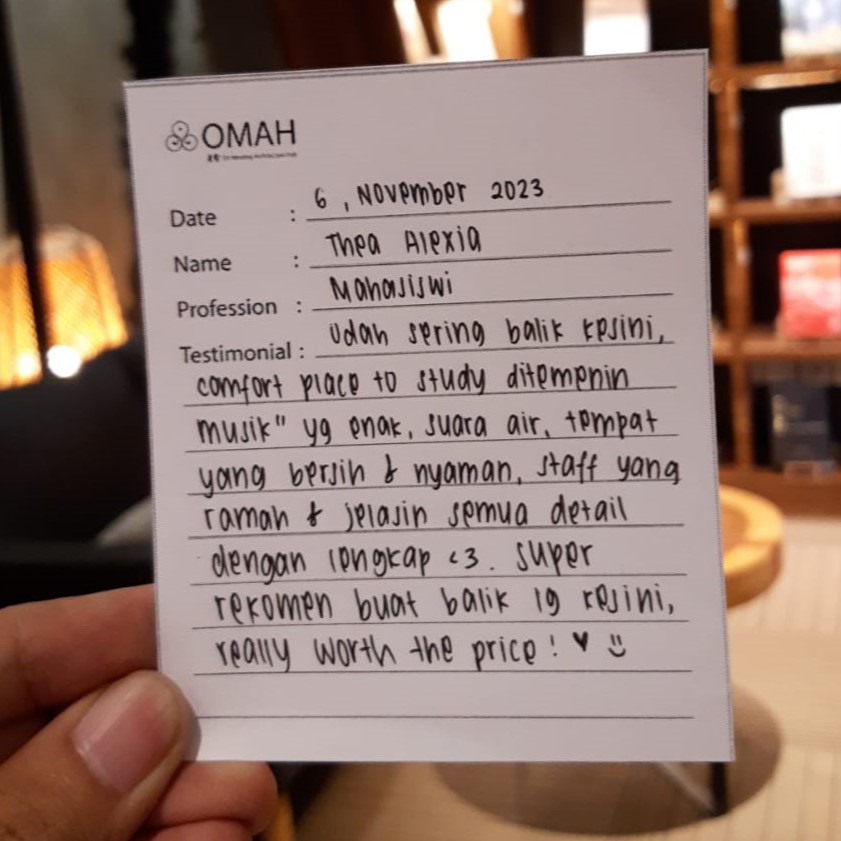 OMAH
Date : 6, November 2023
Name : Thea Alexia
Profession : Mahasiswi
Testimonial : Udah sering balik kesini,
comfort place to study ditemenin
musik" yg enak, suara air, tempat
yang bersih & nyaman, staff yang
ramah & jelasin semua detail
dengan lengkap <3. super
rekomen buat balik lg kesini,
really worth the price! ♥ ü